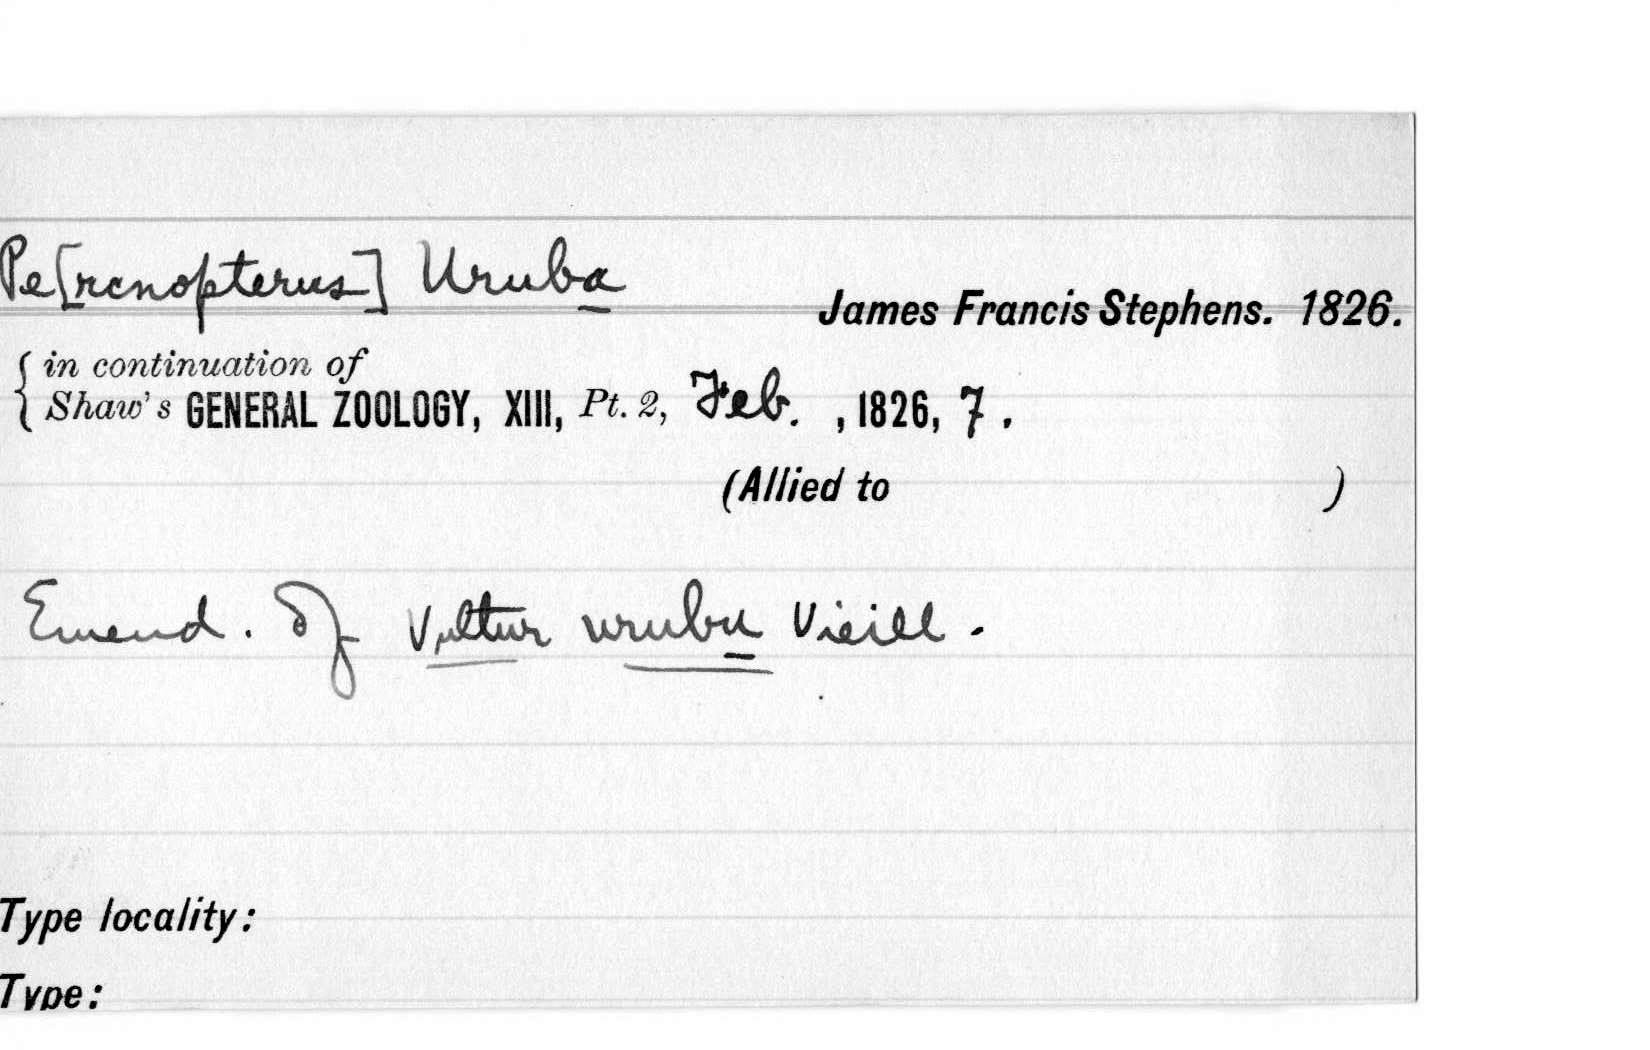 Pe[rcnopterus] Uruba
James Francis Stephens. 1826.
in continuation of
Shaw's GENERAL ZOOLOGY, XIII, Pt. 2, Feb. , 1826, 7.
(Allied to )
Emend. of Vultur urubu Vieill.
Type locality:
Type: